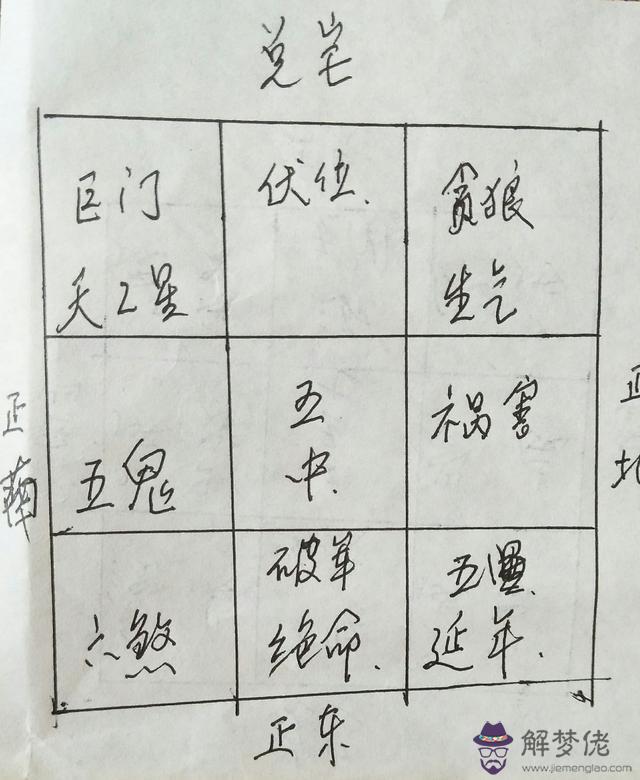 兑宅
巨门
天乙星
伏位.
贪狼
生气
正南
五鬼
五
中.
祸害
正北
六煞
破军
绝命.
五
延年.
正东
解梦佬
www.jiemenglao.com